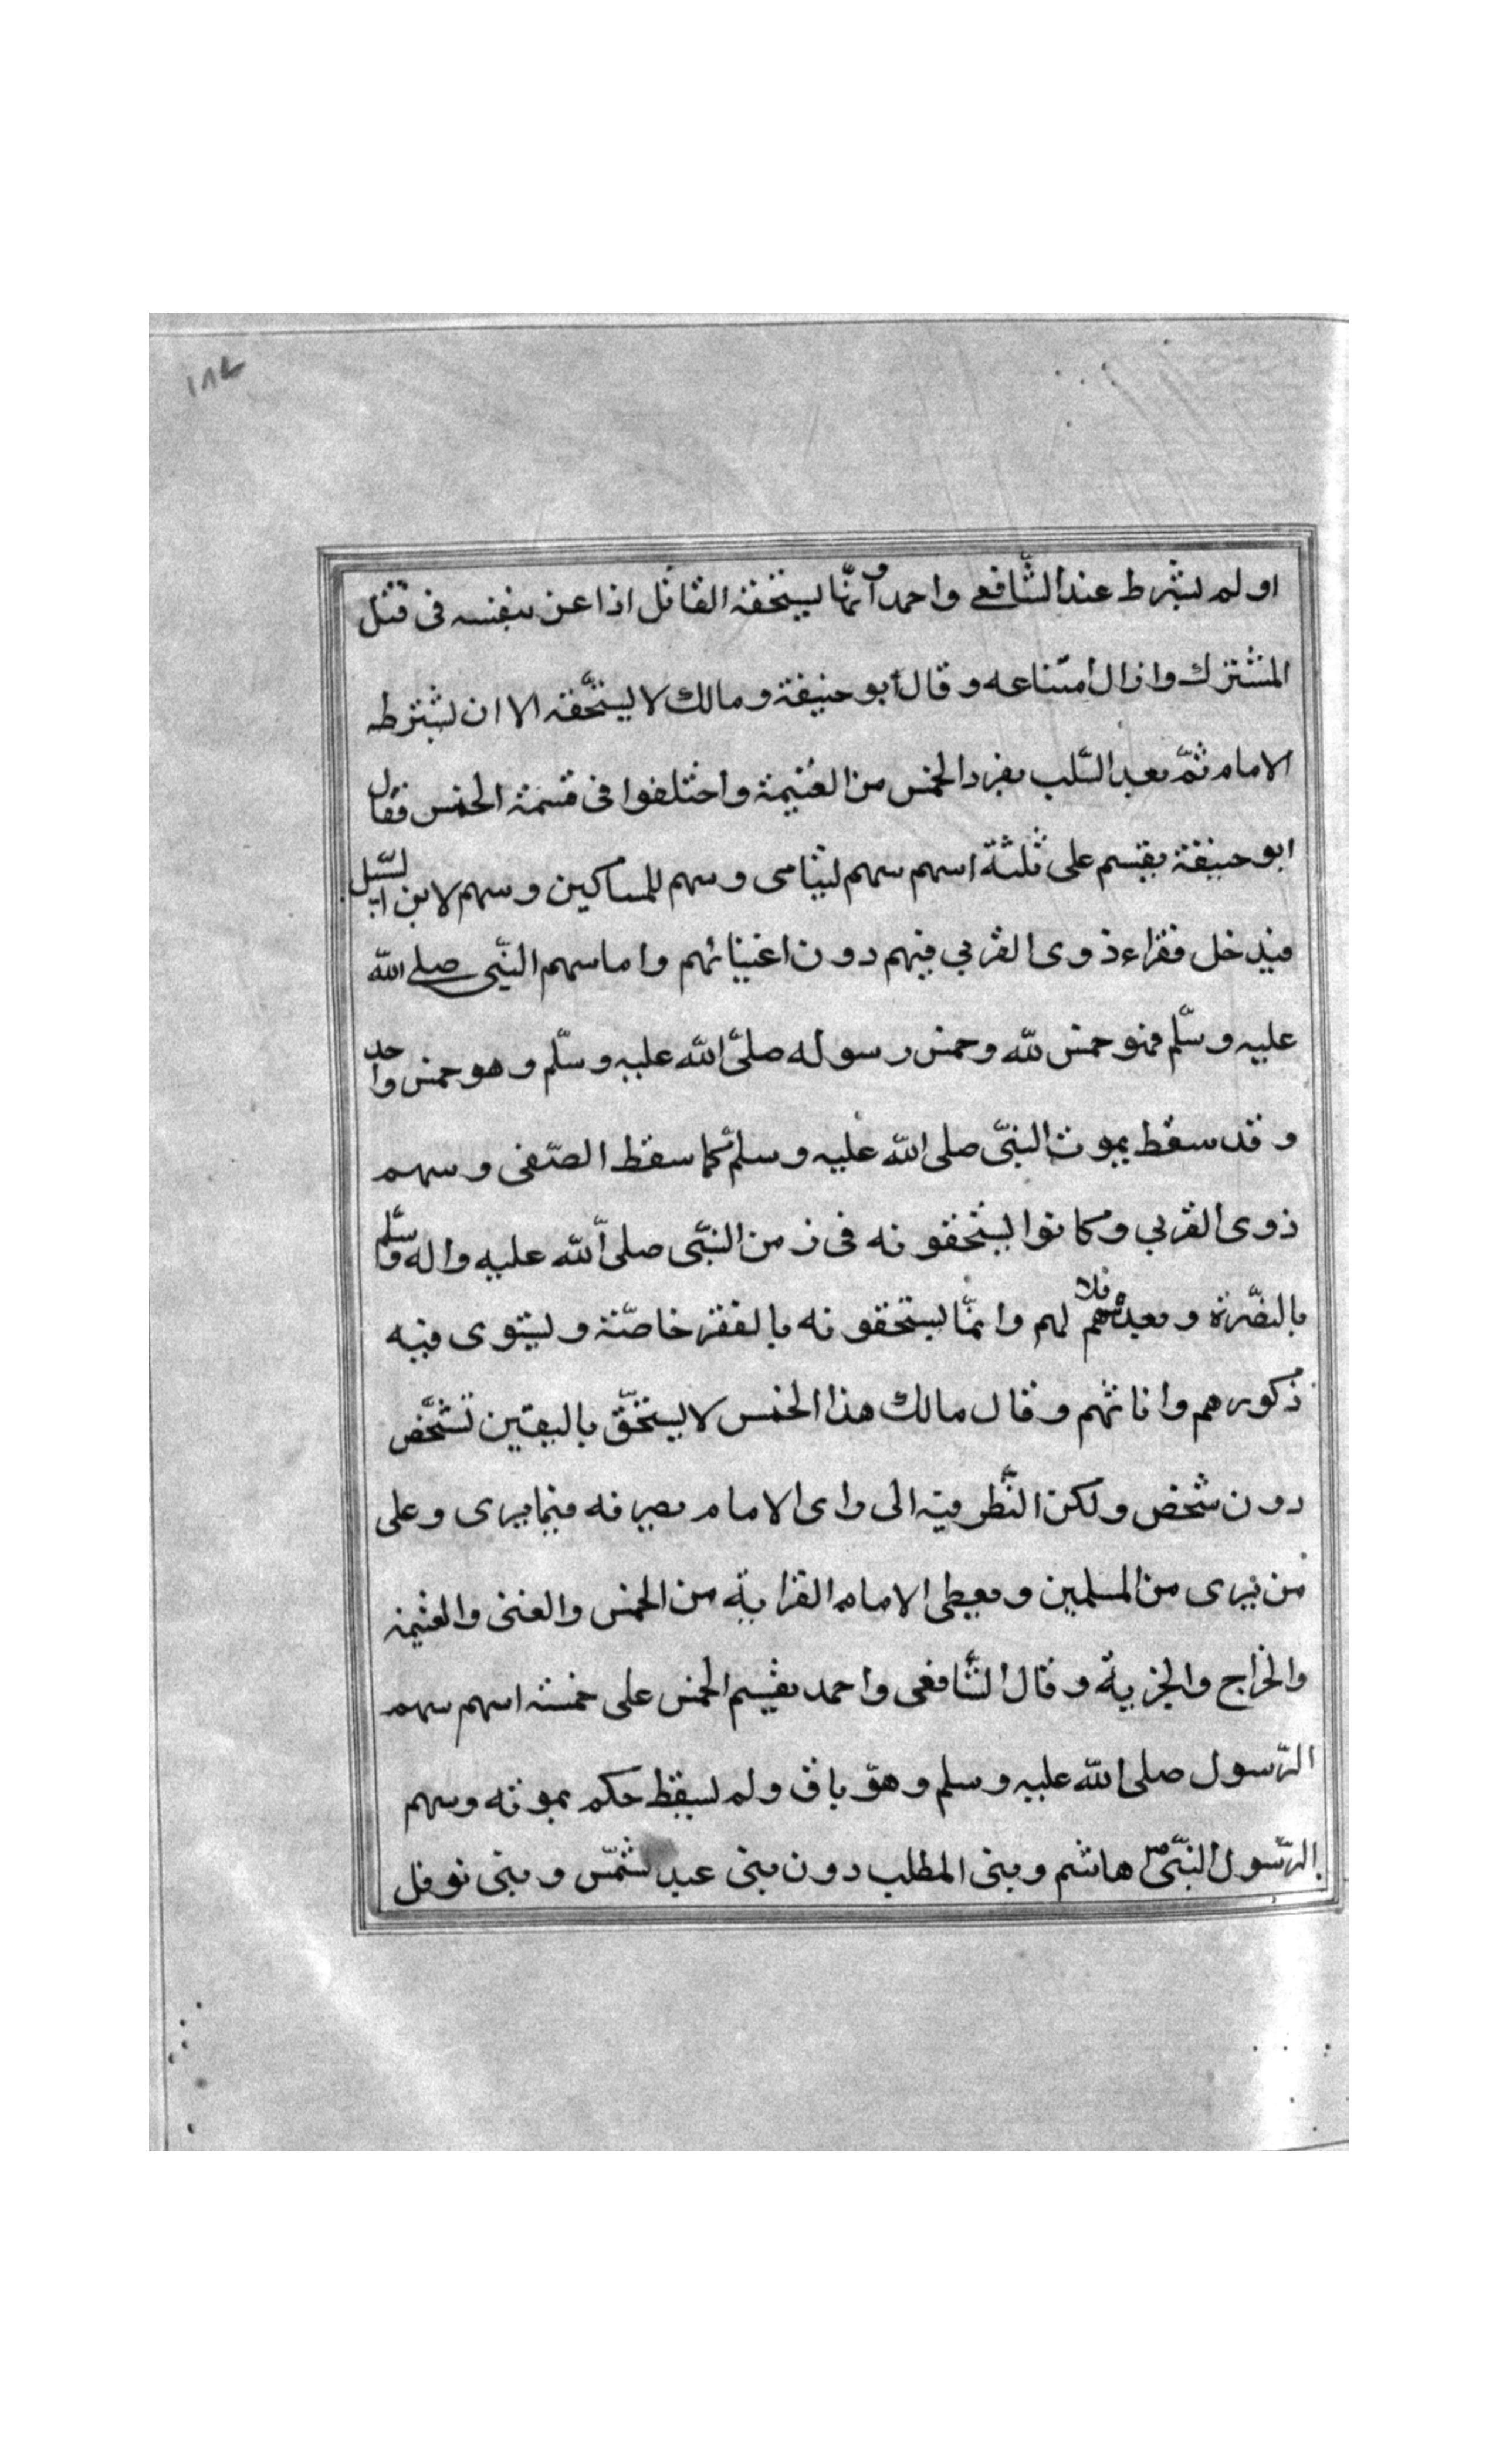 ١٨٧
او لم يشرط عند الشافعى واحمد وانّما يستحقه القاتل اذا عن بنفسه فى قتل
المشترك وازال امتناعه وقال أبو حنيفة ومالك لا يستحّقه الا ان يشترطه
الامام ثمّ بعد السّلب يفرد الخمس من الغنيمة واختلفوا فى قسمة الخمس فقال
ابو حنيفة يقسم على ثلثة اسهم سهم ليتامى وسهم للمساكين وسهم لابن السّبيل
فيدخل فقراء ذوى القربى فيهم دون اغنيائهم واما سهم النّبى صلى الله
عليه وسلّم فهو خمس لله وخمس رسوله صلىّ الله عليه وسلّم وهو خمس واحد
وقد سقط بموت النبىّ صلى الله عليه وسلّم كما سقط الصّفى وسهم
ذوى القربى وكانوا يستحقونه فى زمن النبّى صلى الله عليه واله وسلّم
بالنصّرة وبعده فلا سهم لهم وانمّا يستحقونه بالفقر خاصّة ويستوى فيه
ذكورهم واناثهم وقال مالك هذا الخمس لا يستحّق باليقين تشخّص
دون شخص ولكن النّظر فيه الى واى الامام يصرفه فيما يرى وعلى
من يرى من المسلمين ويعطى الامام القرابة من الخمس والغنى والغنيمة
والخراج والجزية وقال الشّافعى واحمد يقسم الخمس على خمسة اسهم سهم
الرّسول صلى الله عليه وسلم وهو باق ولم يسقط حكم بموته وسهم
الرّسول النبّى ص هاشم وبنى المطلب دون بنى عبد شمّس وبنى نوفل